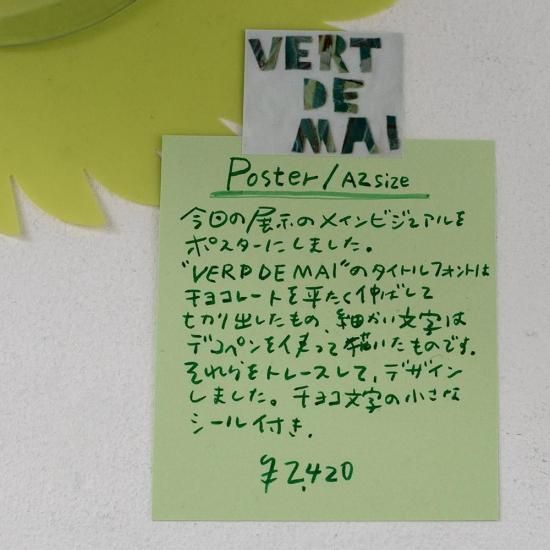 VERT
DE
MAI
Poster/A2size
今回の展示のメインビジュアルを
ポスターにしました。
"VERP DE MAI"のタイトルフォントは
チョコレートを平たく伸ばして
切り出したもの、細かい文字は
デコペンを使って描いたものです。
それらをトレースして、デザイン
しました。チョコ文字の小さな
シール付き.
¥2,420